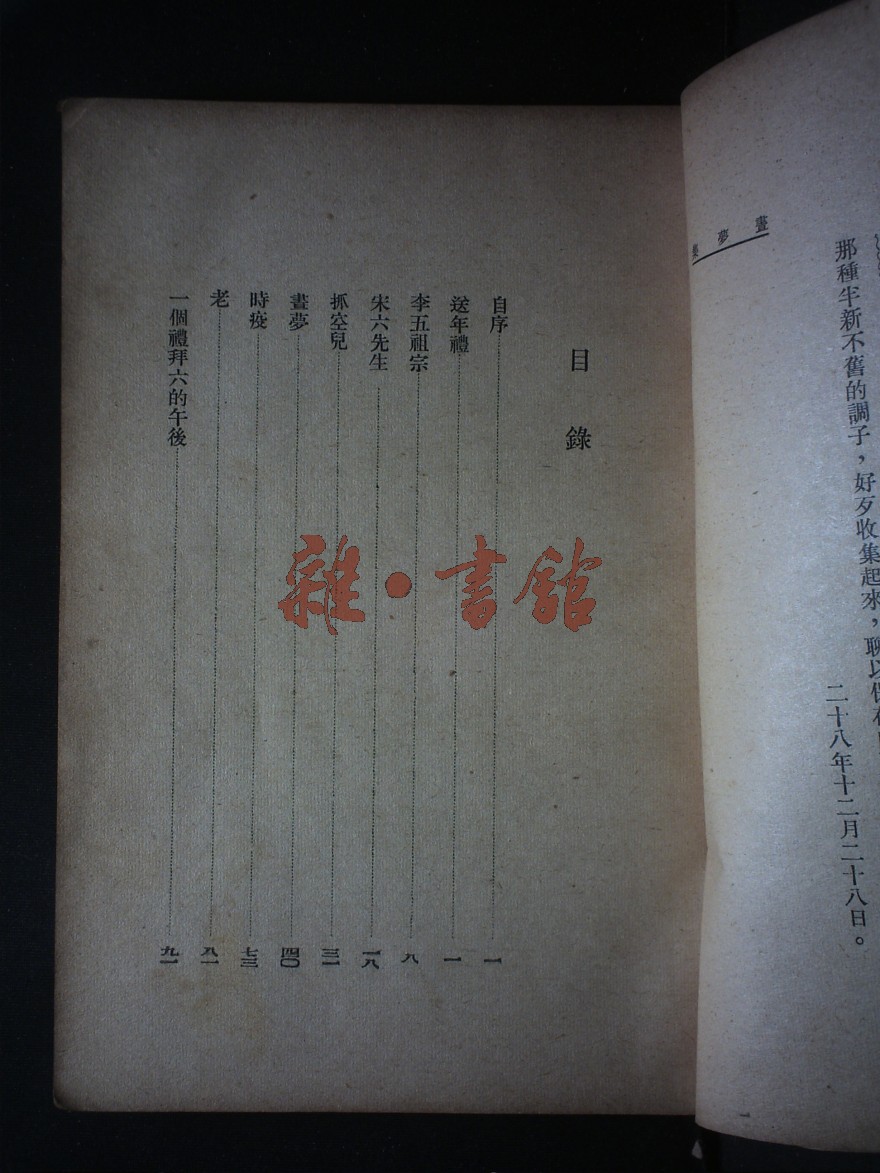 晝夢集
那種半新不舊的調子，好歹收集起來，聊以保存
二十八年十二月二十八日。
目錄
自序 一
送年禮 一
李五祖宗 八
宋六先生 一八
抓空兒 三一
晝夢 四〇
時疫 七三
老 八一
一個禮拜六的午後 九一
雜·書館